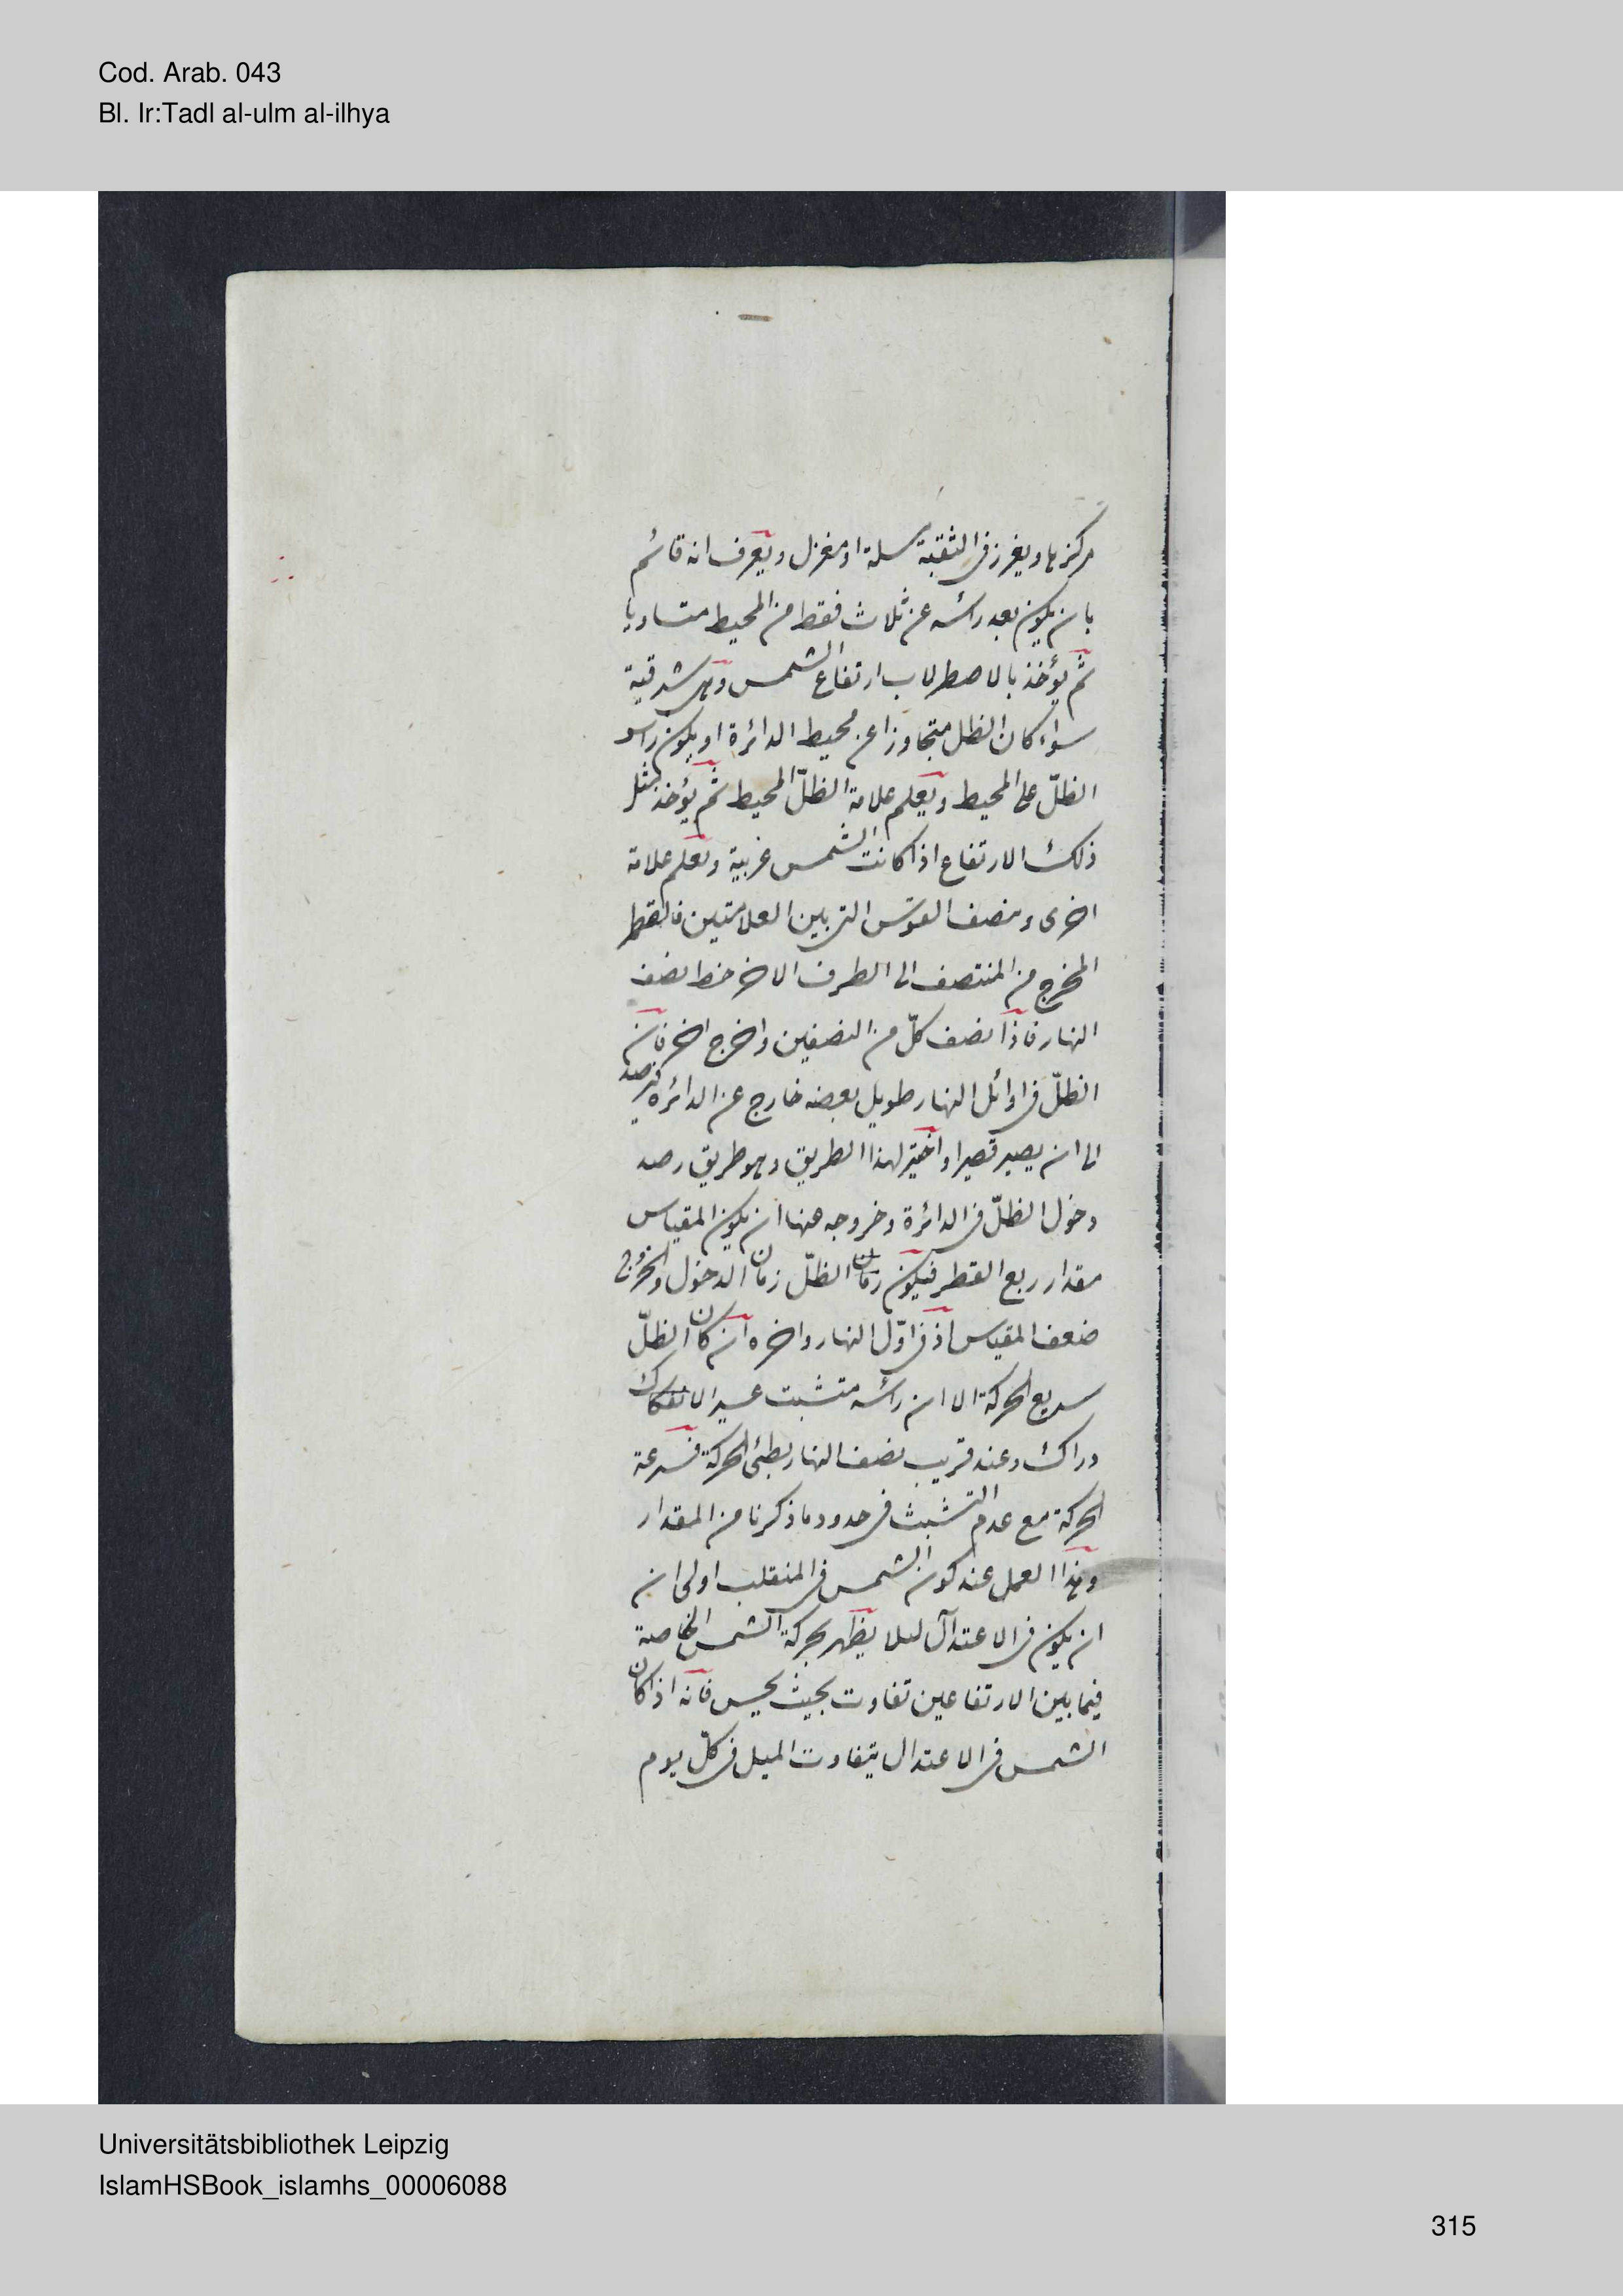 Cod. Arab. 043
Bl. Ir:Tadl al-ulm al-ilhya
مركزها ويغرز فى الثقبة مسلة او مغزل ويعرف انه قائم
بان يكون بعد رأسه عن ثلاث نقط من المحيط متساويا
ثم يؤخذ بالاصطرلاب ارتفاع الشمس وهى شرقية
سواء كان الظل متجاوزا عن محيط الدائرة او يكون راس
الظلّ على المحيط ويعلم علامة الظلّ المحيط ثم يؤخذ مثل
ذلك الارتفاع اذا كانت الشمس غربية ويعلم علامة
اخرى وينصف القوس التى بين العلامتين فالقطر
المخرج من المنتصف الى الطرف الاخر خط نصف
النهار فاذا نصف كلّ من النصفين واخرج اخر فان
الظلّ فى اوائل النهار طويل بعضه خارج عن الدائرة فيرصد
الى ان يصير قصيرا واختير لهذا الطريق وهو طريق رصد
دخول الظلّ فى الدائرة وخروجه عنها ان يكون المقياس
مقدار ربع القطر فيكون زمان الظلّ زمان الدخول والخروج
ضعف المقياس اذ فى اوّل النهار واخره ان كان الظلّ
سريع الحركة الا ان رأسه متشبت عسير الانفكاك
دراك وعند قريب نصف النهار بطئى الحركة فسرعة
الحركة مع عدم التشبث فى حدود ما ذكرنا من المقدار
وهذا العمل عند كون الشمس فى المنقلب اولى ان
ان يكون فى الاعتدال ليلا يظهر بحركة الشمس الخاصة
فيما بين الارتفاعين تفاوت بحيث يحس فانه اذ كان
الشمس فى الاعتدال يتفاوت الميل فى كلّ يوم
Universitätsbibliothek Leipzig
IslamHSBook_islamhs_00006088
315